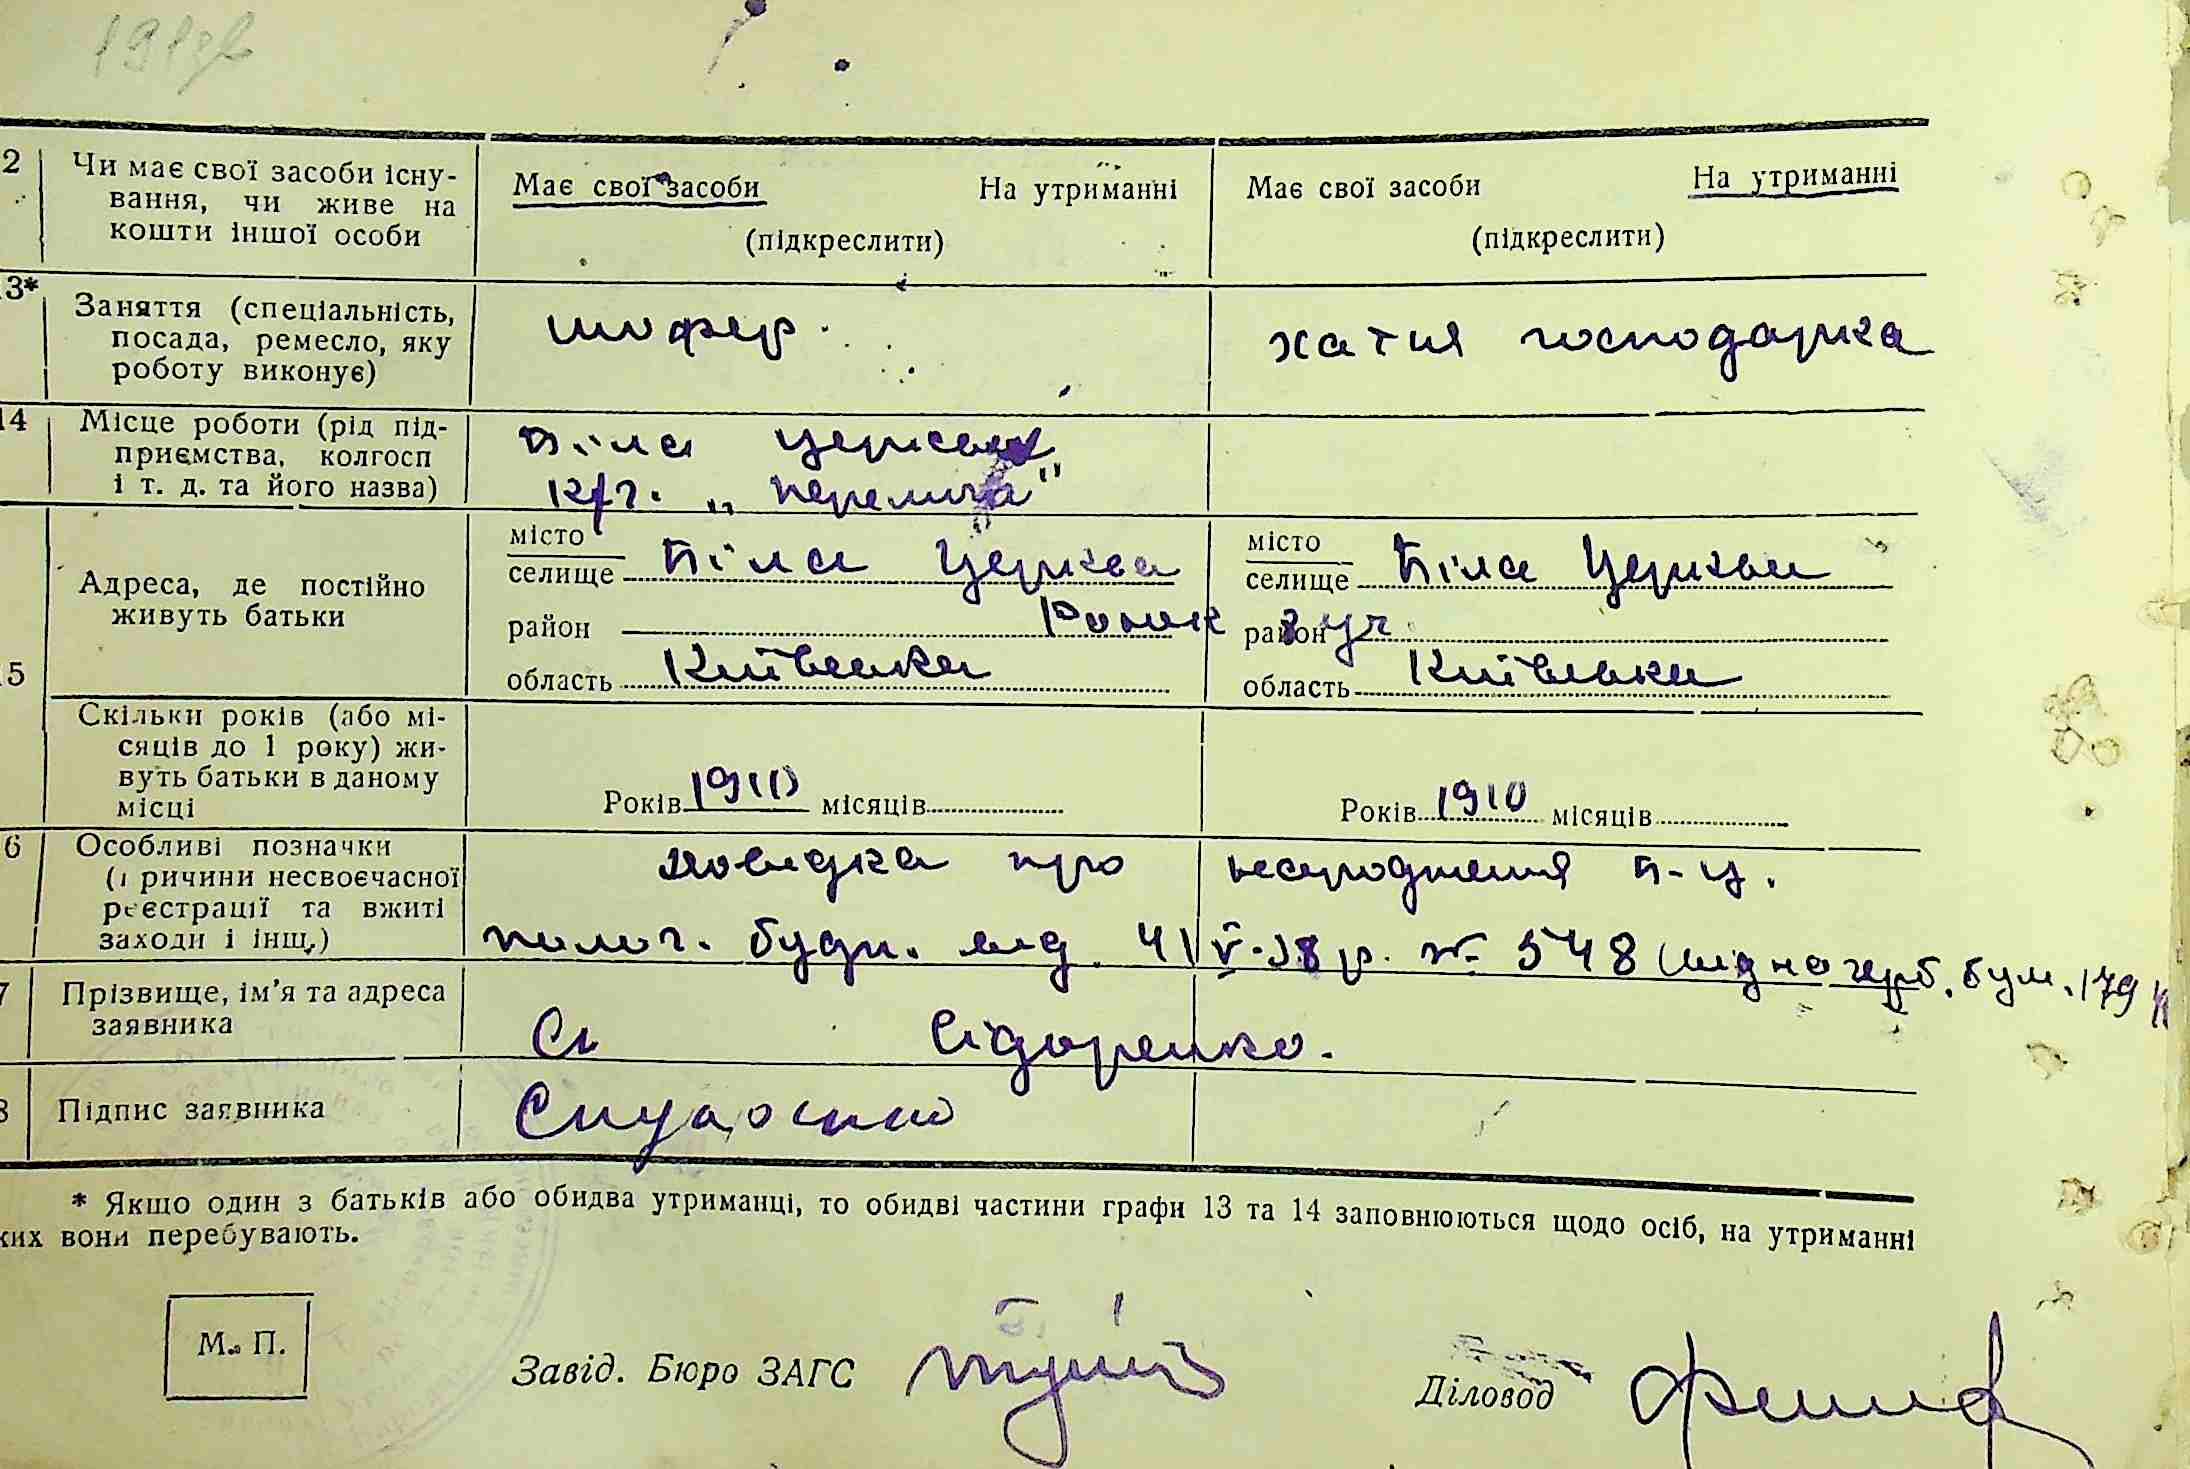 2 Чи має свої засоби існу- Має свої засоби На утриманні Має свої засоби На утриманні
вання, чи живе на
кошти іншої особи (підкреслити) (підкреслити)
3* Заняття (спеціальність, шофер хатня господарка
посада, ремесло, яку
роботу виконує)
14 Місце роботи (рід під- Біла Церква
приємства, колгосп
і т. д. та його назва) к/г. „Перемога"
місто місто
селище Біла Церква селище Біла Церква
Адреса, де постійно
живуть батьки район Роток район 3 уч
15 область Київська область Київська
Скільки років (або мі-
сяців до 1 року) жи-
вуть батьки в даному
місці Років 1910 місяців Років 1910 місяців
6 Особливі позначки довидка про народження Б-Ц.
(причини несвоєчасної
реєстрації та вжиті
заходи і інш.) полог. будн. від V-38 р. № 548
7 Прізвище, ім'я та адреса
заявника Сідоренко.
8 Підпис заявника
* Якщо один з батьків або обидва утриманці, то обидві частини графи 13 та 14 заповнюються щодо осіб, на утриманні
ких вони перебувають.
М. П.
Завід. Бюро ЗАГС
Діловод